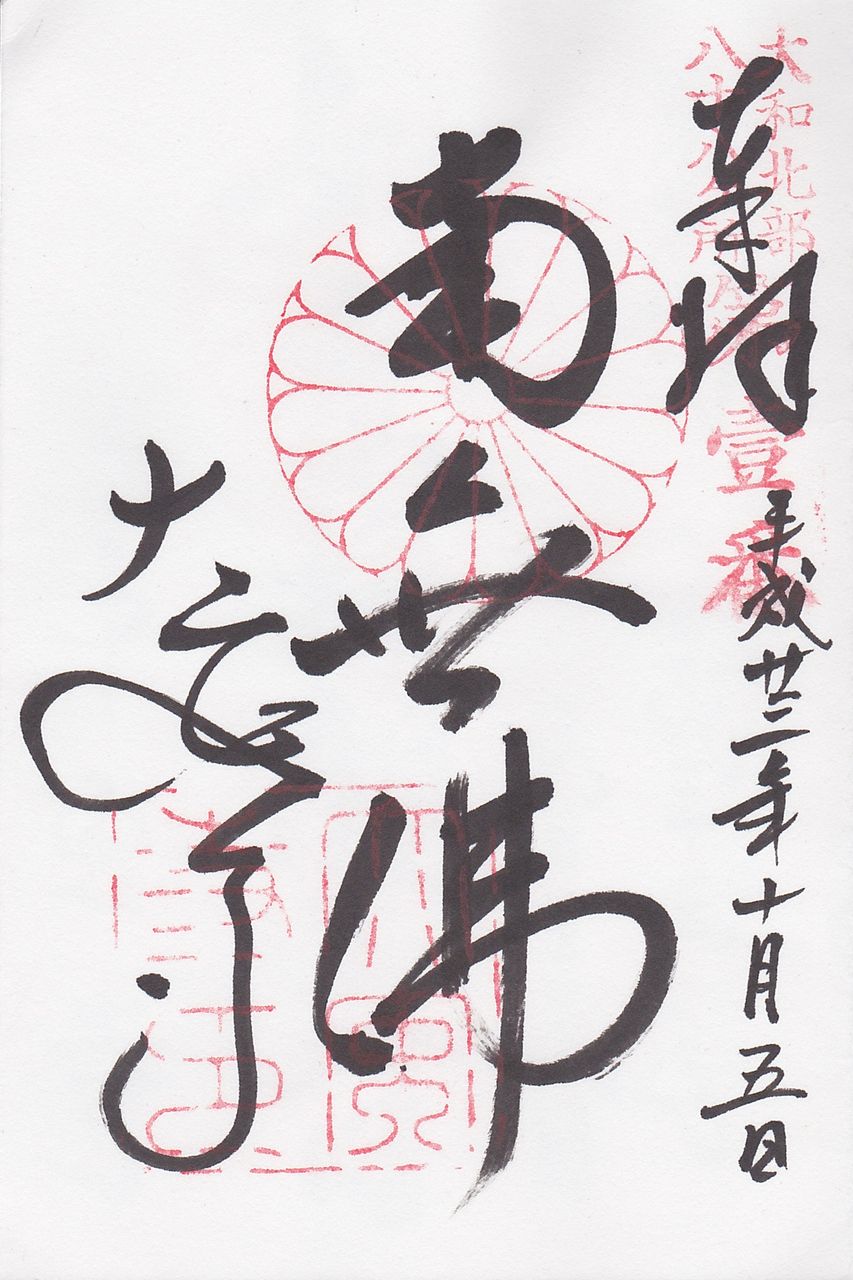 大和北部
八十八ヶ所霊場
壹番
奉拝
平成廿二年十月五日
南無佛
大安寺